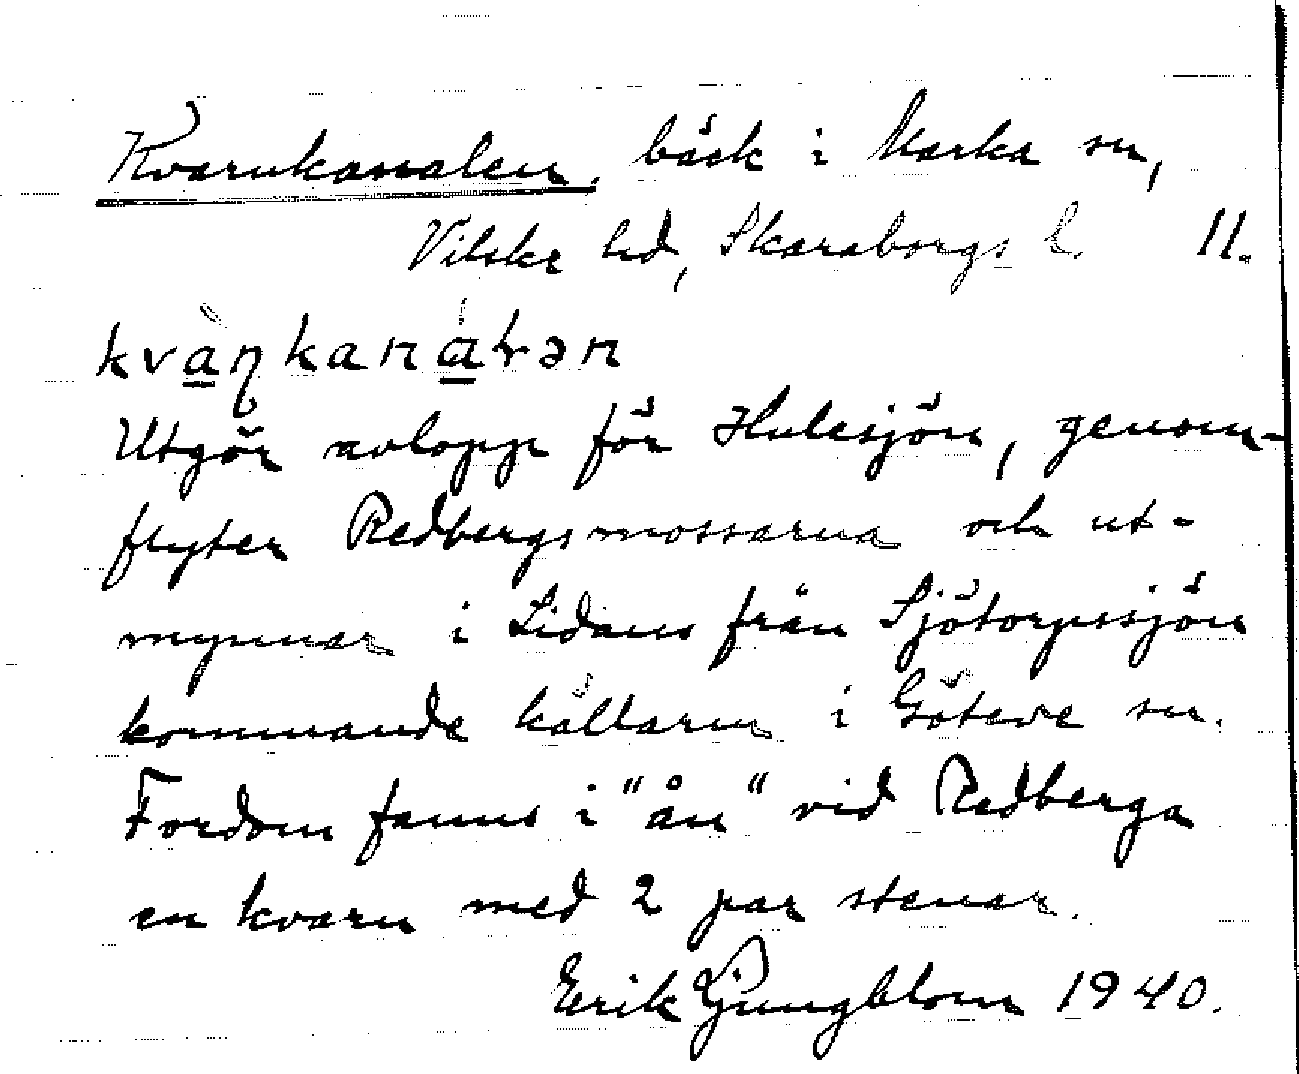 Kvarnkanalen, bäck i Marka sn,
Vilske hd, Skaraborgs l. 11.
kvàɳkanáɽən
Utgör avlopp för Hulesjön, genom-
flyter Redbergsmossarna och ut-
mynnar i Lidans från Sjötorpssjön
kommande källarm i Göteve sn.
Fordom fanns i "ån" vid Redberga
en kvarn med 2 par stenar.
Erik Ljungblom 1940.